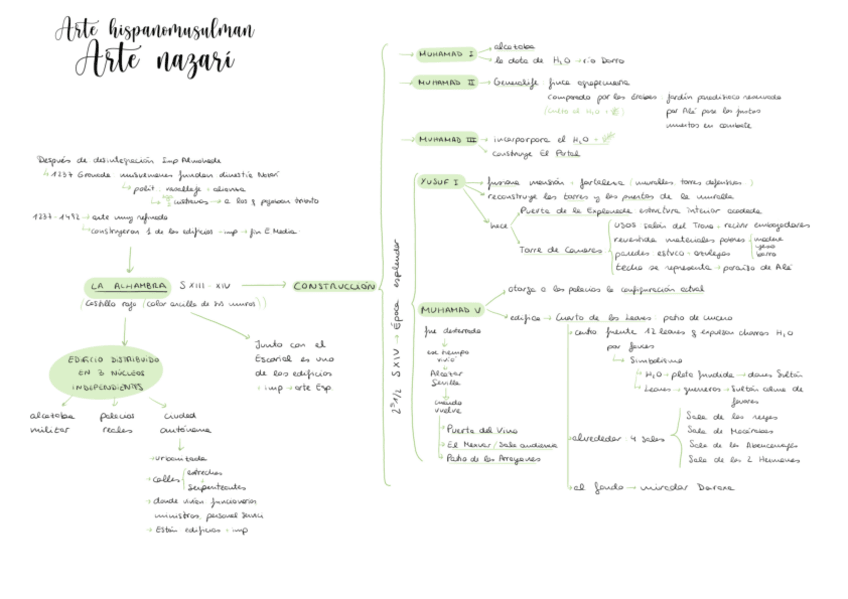 Arte hispanomusulman
Arte nazarí
Después de desintegración Imp Almohade
1237 Granada musulmanes fundan dinastía Nazarí
polít. vasallaje + alianza
1237-1492 → arte muy refinado
construyeron 1 de los edificios + imp → fin E Media
LA ALHAMBRA S XIII - XIV → CONSTRUCCIÓN
Castillo rojo (color arcilla de sus muros)
EDIFICIO DISTRIBUIDO
EN 3 NÚCLEOS
INDEPENDIENTES
alcazaba
militar
palacios
reales
ciudad
autónoma
urbanizada
calles
estrechas
serpenteantes
donde vivían funcionarios
ministros, personal
Están edificios + imp
Junto con el
Escorial es uno
de los edificios
+ imp → arte Esp.
MUHAMAD I
alcazaba
la dota de H2O → río Darro
MUHAMAD II → Generalife: finca agropecuaria
comparado por los árabes: jardín paradisiaco reservado
por Alá para los justos
muertos en combate
MUHAMAD III
incorporpora el H2O
construye El Partal
2ª 1/2 S XIV → Época esplendor
YUSUF I
fusiona mansión + fortaleza (murallas, torres defensivas...)
reconstruye las torres y las puertas de la muralla
hace
Puerta de la Explanada estructura interior acodada
Torre de Comares
usos salón del Trono + recibir embajadores
revestida materiales pobres
madera
yeso
barro
paredes estuco + azulejos
techo se representa → paraíso de Alá
MUHAMAD V
otorga a los palacios la configuración actual
edifica → Cuarto de los Leones patio de crucero
centro fuente 12 leones q expulsan chorros H2O
por fauces
Simbolismo
H2O → plata fundida → dones Sultán
Leones → guerreros → Sultán colma de
favores
alrededor: 4 salas
Sala de los reyes
Sala de Mocárabes
Sala de los Abencerrajes
Sala de las 2 Hermanas
al fondo → mirador Daraxa
fue desterrado
ese tiempo
vivió
Alcázar
Sevilla
cuando
vuelve
Puerta del Vino
El Mexuar/Sala audiencia
Patio de los Arrayanes